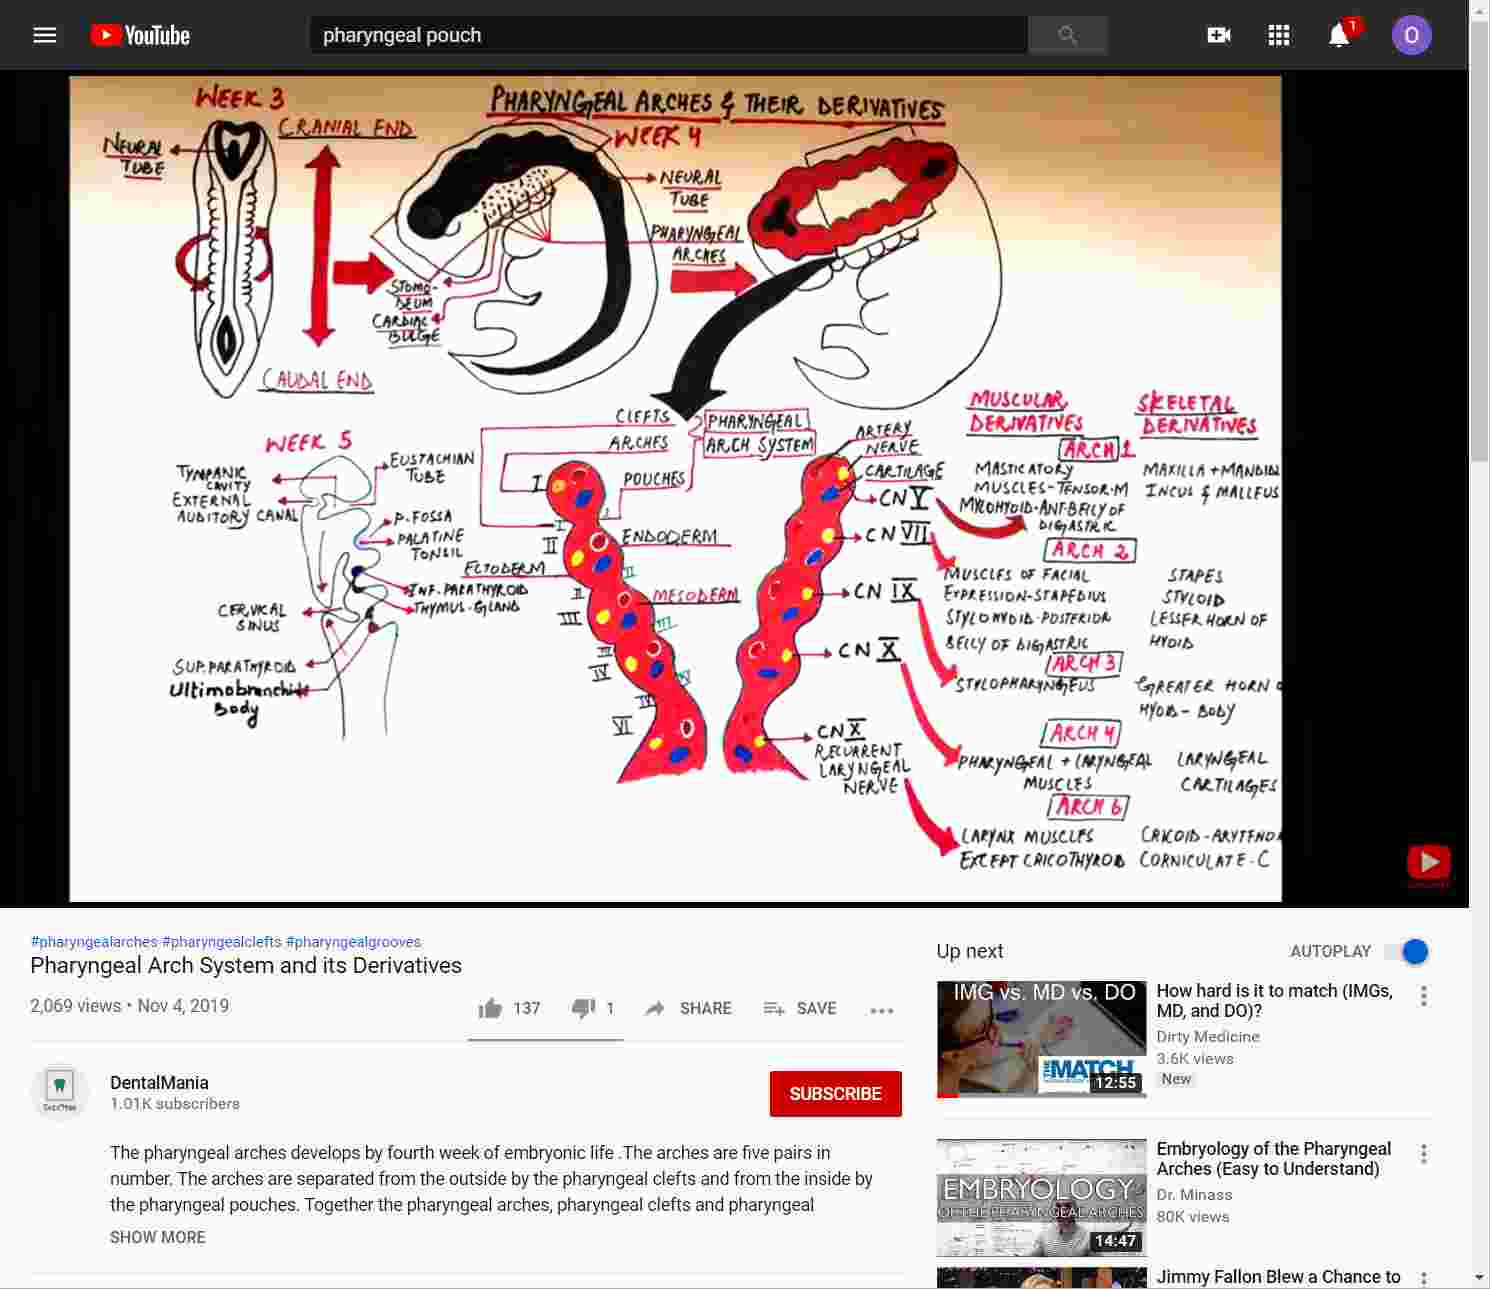 YouTube
pharyngeal pouch
1
O
WEEK 3
PHARYNGEAL ARCHES & THEIR DERIVATIVES
CRANIAL END
WEEK 4
NEURAL
TUBE
NEURAL
TUBE
PHARYNGEAL
ARCHES
STOMO-
DEUM
CARDIAC
BULGE
CAUDAL END
WEEK 5
TYMPANIC
CAVITY
EXTERNAL
AUDITORY CANAL
EUSTACHIAN
TUBE
P.FOSSA
PALATINE
TONSIL
INF.PARATHYROID
THYMUS-GLAND
CERVICAL
SINUS
SUP.PARATHYROID
Ultimobranchial
Body
CLEFTS
ARCHES
POUCHES
PHARYNGEAL
ARCH SYSTEM
I
I
II
ENDODERM
ECTODERM
II
II
MESODERM
III
III
III
IV
IV
IV
VI
ARTERY
NERVE
CARTILAGE
CN V
CN VII
CN IX
CN X
CN X
RECURRENT
LARYNGEAL
NERVE
MUSCULAR
DERIVATIVES
SKELETAL
DERIVATIVES
ARCH 1
MASTICATORY
MUSCLES-TENSOR-M
MYLOHYOID-ANT-BELLY OF
DIGASTRIC
MAXILLA + MANDIB
INCUS & MALLEUS
ARCH 2
MUSCLES OF FACIAL
EXPRESSION-STAPEDIUS
STYLOHYOID-POSTERIOR
BELLY OF DIGASTRIC
STAPES
STYLOID
LESSER HORN OF
HYOID
ARCH 3
STYLOPHARYNGEUS
GREATER HORN O
HYOID-BODY
ARCH 4
PHARYNGEAL + LARYNGEAL
MUSCLES
LARYNGEAL
CARTILAGES
ARCH 6
LARYNX MUSCLES
EXCEPT CRICOTHYROID
CRICOID-ARYTENOI
CORNICULATE-C
#pharyngealarches #pharyngealclefts #pharyngealgrooves
Pharyngeal Arch System and its Derivatives
2,069 views • Nov 4, 2019
137
1
SHARE
SAVE
DentalMania
1.01K subscribers
SUBSCRIBE
The pharyngeal arches develops by fourth week of embryonic life .The arches are five pairs in
number. The arches are separated from the outside by the pharyngeal clefts and from the inside by
the pharyngeal pouches. Together the pharyngeal arches, pharyngeal clefts and pharyngeal
SHOW MORE
Up next
AUTOPLAY
IMG vs. MD vs. DO
THE MATCH
12:55
How hard is it to match (IMGs,
MD, and DO)?
Dirty Medicine
3.6K views
New
EMBRYOLOGY
OF THE PHARYNGEAL ARCHES
14:47
Embryology of the Pharyngeal
Arches (Easy to Understand)
Dr. Minass
80K views
Jimmy Fallon Blew a Chance to